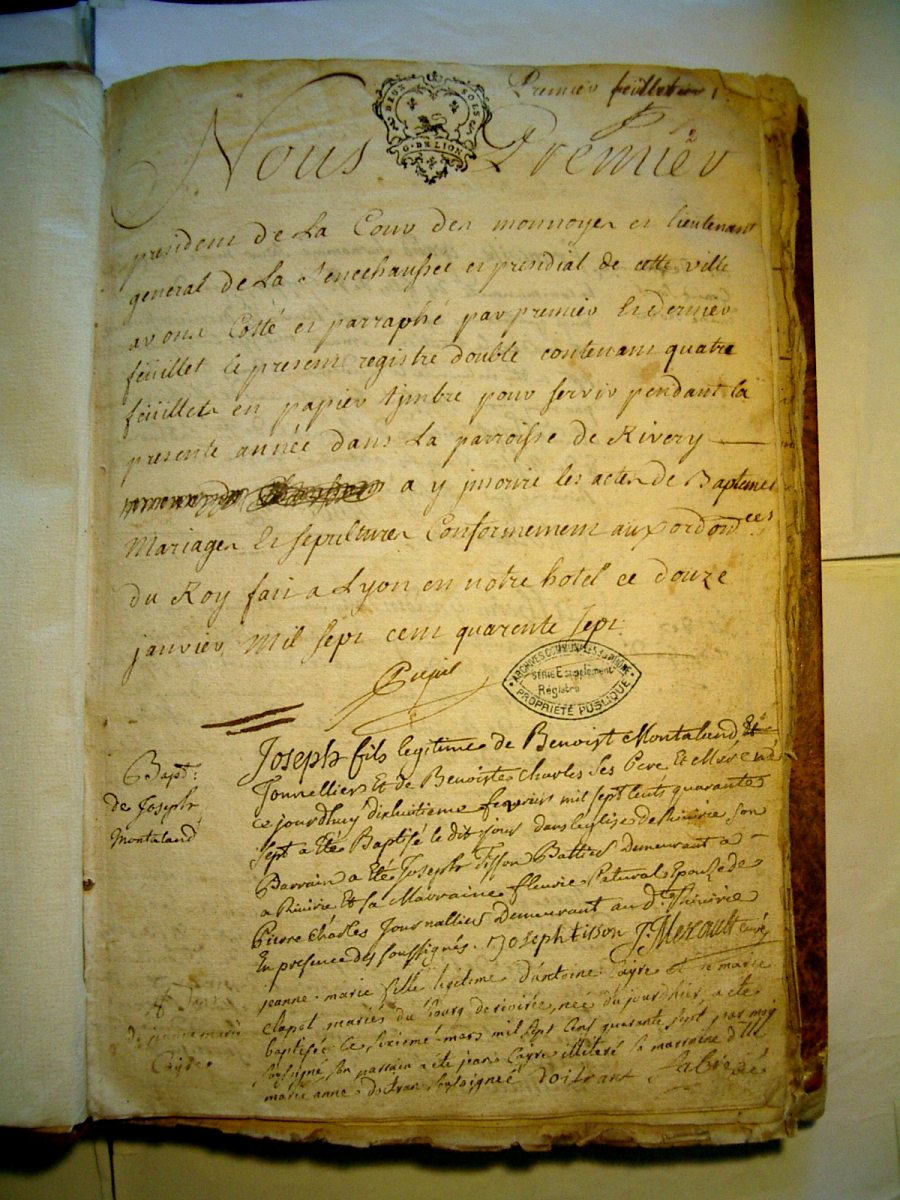 Premier feuillet 1
DEUX SOLS
G. DE LION
Nous Premier
president de La Cour des monnoyes et lieutenant
general de La Senechaussee et presidial de cette ville
avons Cotté et parraphé par premier Et Dernier
feüillet le present registre double contenant quatre
feüillets en papier timbre pour servir pendant la
presente année dans La parroisse de Rivery
a y jnscrire les actes de Baptemes
Mariages Et sepultures Conformement aux ordon.ces
du Roy fait a Lyon en notre hotel ce douze
janvier Mil sept cent quarente sept.
ARCHIVES COMMUNALES
SÉRIE E supplément
Régistre
PROPRIÉTÉ PUBLIQUE
Bapt:
de Joseph
Montaland
Joseph fils legitime de Benoist Montaland
Tonnellier Et de Benoiste Charles Ses Pere Et Mére né
ce jourdhuy dixhuitieme fevrier mil sept cents quarante
sept a été Baptisé le dit jour dans leglise de Rivirie son
Parrain a été Joseph Tisson demeurant a
a Rivirie Et sa Marraine fleurie Patural Epouse de
Pierre Charles Journallier demeurant au d.t Rivirie
En presence des soussignés. Joseph tisson J. curé
de jeanne marie
Cayre
jeanne-marie fille legitime d'antoine Cayre et de marie
clapet mariés du bourg de rivirie, née du jourdhier, a ete
baptisée ce sixieme mars mil sept cens quarante sept par moy
soussigné son parrain a ete jean Cayre illiteré sa marraine d.lle
marie anne soussignée